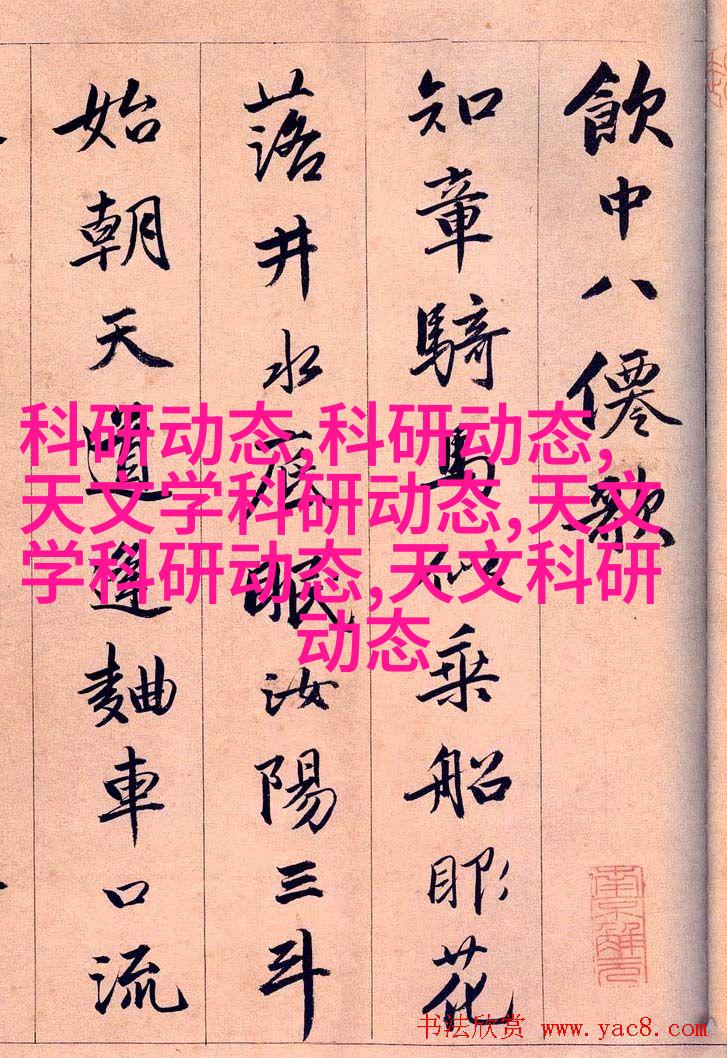 飲中八僊歌
知章騎馬似乘船眼花
落井水底眠汝陽三斗
始朝天道逢麯車口流
科研动态,科研动态,
天文学科研动态,天文
学科研动态,天文科研
动态
南京解元
书法欣赏 www.yac8.com